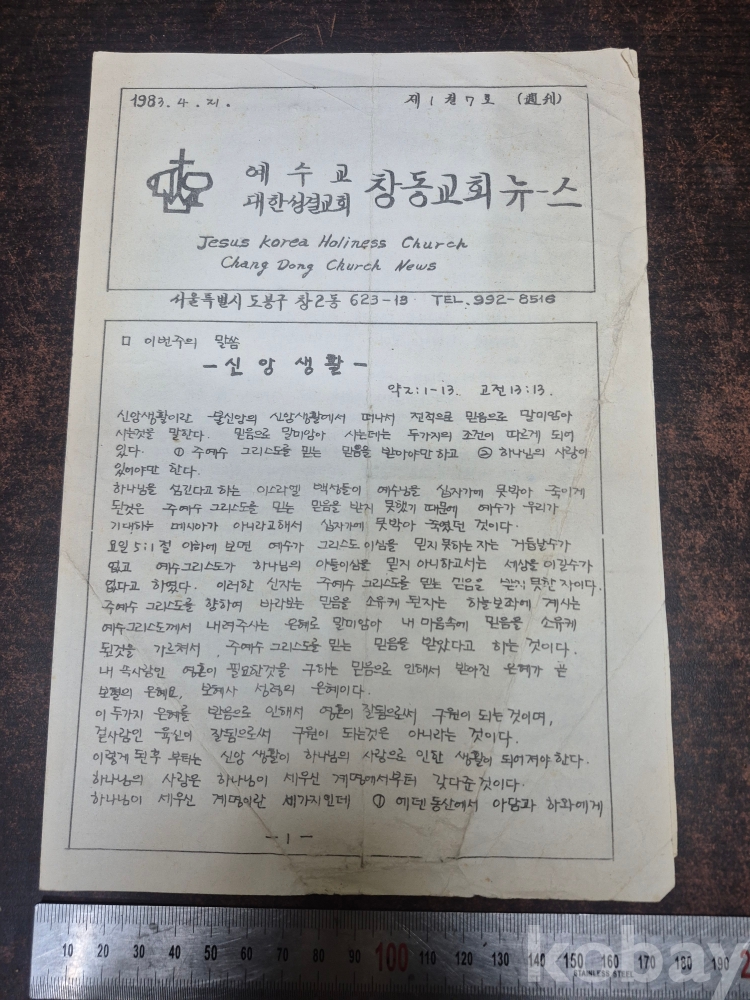 1983. 4. 21.
제 1 권 7 호 (週刊)
예수교
대한성결교회 창동교회 뉴-스
Jesus Korea Holiness Church
Chang Dong Church News
서울특별시 도봉구 창2동 623-13 TEL. 992-8516
□ 이번주의 말씀
-신앙생활-
약2:1-13. 고전13:13.
신앙생활이란 불신앙의 신앙생활에서 떠나서 전적으로 믿음으로 말미암아
사는것을 말한다. 믿음으로 말미암아 사는데는 두가지의 조건이 따르게 되어
있다. ① 주예수 그리스도를 믿는 믿음을 받아야만 하고 ② 하나님의 사랑이
있어야만 한다.
하나님을 섬긴다고 하는 이스라엘 백성들이 예수님을 십자가에 못박아 죽이게
된것은 주예수 그리스도를 믿는 믿음을 받지 못했기 때문에 예수가 우리가
기대하는 메시아가 아니라고해서 십자가에 못박아 죽였던 것이다.
요일 5:1절 이하에 보면 예수가 그리스도이심을 믿지못하는자는 거듭날수가
없고 예수그리스도가 하나님의 아들이심을 믿지 아니하고서는 세상을 이길수가
없다고 하였다. 이러한 신자는 주예수 그리스도를 믿는 믿음을 받지 못한 자이다.
주예수 그리스도를 향하여 바라보는 믿음을 소유케 된자는 하늘보좌에 계시는
예수그리스도께서 내려주시는 은혜로 말미암아 내 마음속에 믿음을 소유케
된것을 가르쳐서 주예수 그리스도를 믿는 믿음을 받았다고 하는 것이다.
내 속사람인 영혼이 필요한것을 구하는 믿음으로 인해서 받아진 은혜가 곧
보혈의 은혜요, 보혜사 성령의 은혜이다.
이 두가지 은혜를 받음으로 인해서 영혼이 잘됨으로써 구원이 되는것이며,
겉사람인 육신이 잘됨으로써 구원이 되는것은 아니라는 것이다.
이렇게 된후 부터는 신앙 생활이 하나님의 사랑으로 인한 생활이 되어져야 한다.
하나님의 사랑은 하나님이 세우신 계명에서부터 갖다준 것이다.
하나님이 세우신 계명이란 세가지인데 ① 에덴동산에서 아담과 하와에게
-1-
10 20 30 40 50 60 70 80 90 100 110 120 130 140 150 160 170 180 190
STAINLESS STEEL
kobay